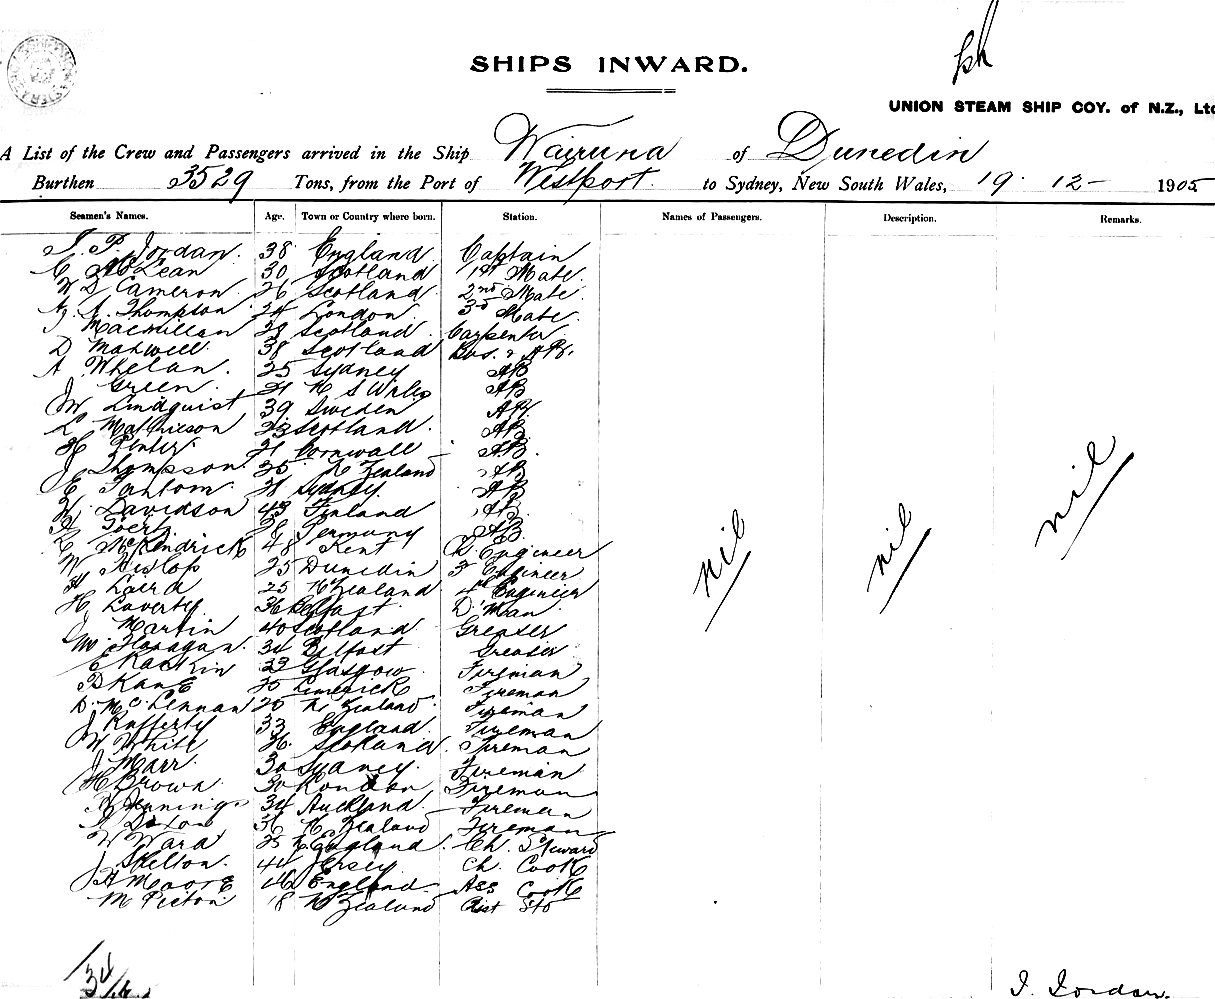 SHIPS INWARD.
UNION STEAM SHIP COY. of N.Z., Ltd
A List of the Crew and Passengers arrived in the Ship Wairuna of Dunedin
Burthen 3529 Tons, from the Port of Westport to Sydney, New South Wales, 19 12 - 1905
Seamen's Names. Age. Town or Country where born. Station. Names of Passengers. Description. Remarks.
J. P. Jordan. 38 England Captain
C McLean 30 Scotland 1st Mate
W D Cameron 26 Scotland 2nd Mate
A. Thompson 24 London 3rd Mate
J Macmillan 28 Scotland Carpenter
D Maxwell 38 Scotland Bos. & AB.
A Whelan. 25 Sydney AB
J Green. 21 N S Wales AB
W Lindquist 39 Sweden AB
L Mathieson 23 Scotland. AB
H Penter 21 Cornwall AB
J Thompson. 25 N Zealand AB
E Tantom 21 Sydney. AB
Davidson 43 Finland AB
28 Germany AB
McKendrick 48 Kent Ch Engineer
W Hislop 25 Dunedin 3 Engineer
H Laird 25 N Zealand 4th Engineer
H. Laverty 36 Belfast D'Man
J Martin 40 Scotland Greaser
W. Flanagan. 34 Belfast Greaser
E Rankin 29 Glasgow Fireman
P Kane 25 Limerick Fireman
D. McLennan 25 N. Zealand. Fireman
J Rafferty 33 England Fireman
W White 36. Scotland. Fireman
J Marr. 30 Sydney. Fireman
H Brown 30 London Fireman
Jennings 34 Auckland. Fireman
Dixon 36 N. Zealand Fireman
W Ward 25 England. Ch. Steward
J Skelton. 44 Jersey Ch. Cook
H Moore 16 England. Ass Cook
M Picton 18 N Zealand Asst Sto
nil nil nil
34
J. Jordan.